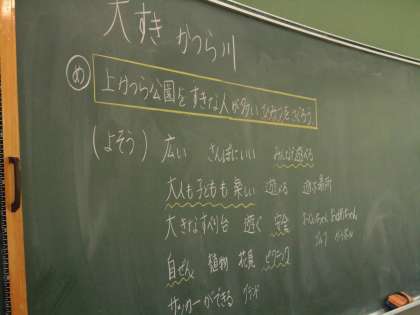 大すき かつら川
め 上かつら公園をすきな人が多いひみつをさぐろう。
(よそう) 広い さんぽにいい みんなで遊べる
大人も子どもも楽しい 遊べる 遊ぶ場所
大きなすべり台 遊ぐ 安全
自ぜん 植物 花見 ピクニック
サッカーができる